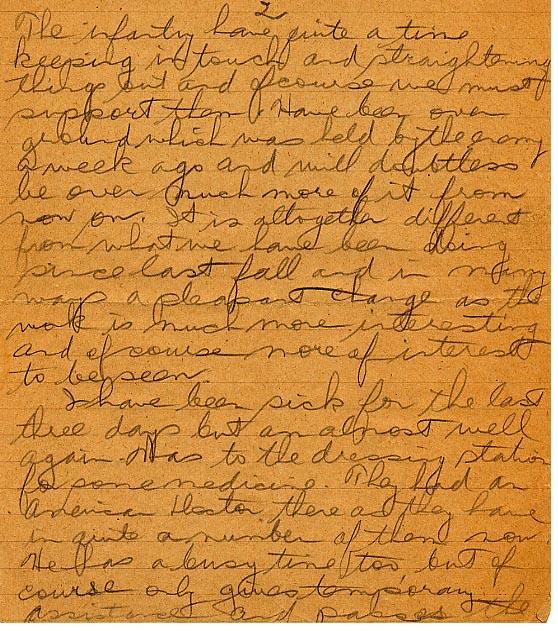 2
The infantry have quite a time
keeping in touch and straightening
things out and of course we must
support them. Have been over
ground which was held by the enemy
a week ago and will doubtless
be over much more of it from
now on. It is altogether different
from what we have been doing
since last fall and in many
ways a pleasant change as the
work is much more interesting
and of course more of interest
to be seen
I have been sick for the last
three days but am almost well
again. Was to the dressing station
for some medicine. They had an
American Doctor there as they have
in quite a number of them now.
He has a busy time too but of
course only gives temporary
assistance and passes the